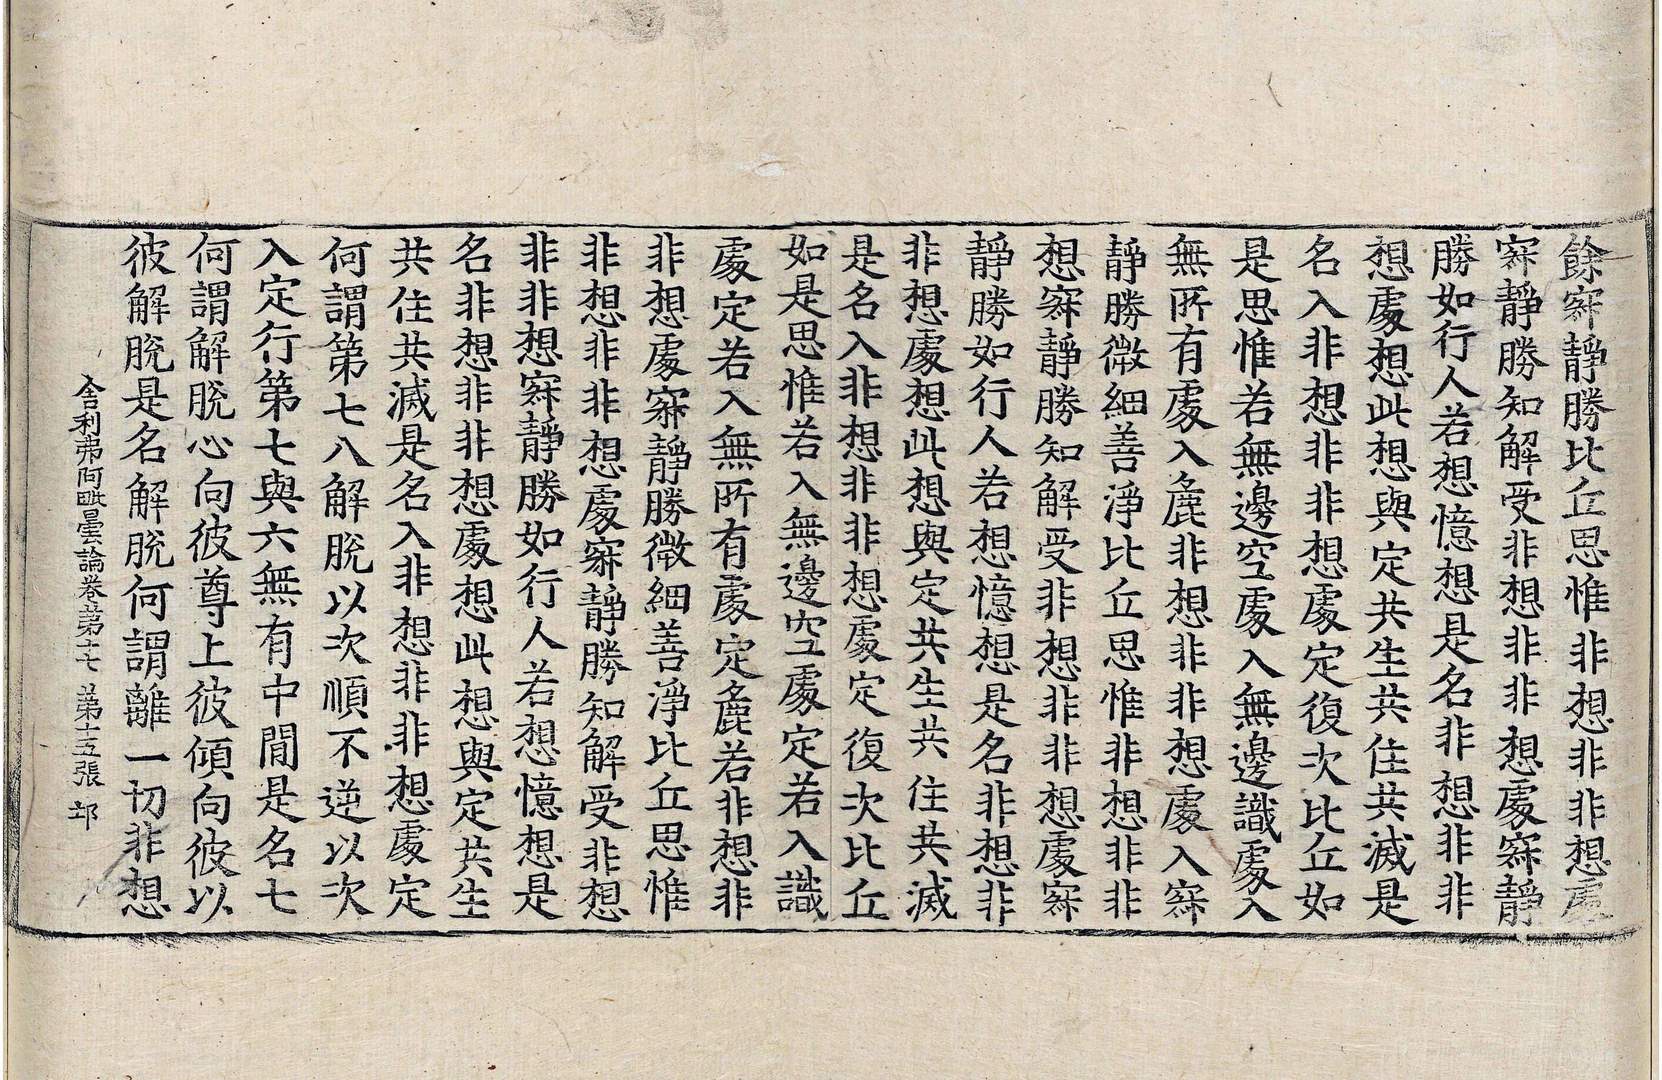 餘寂靜勝比丘思惟非想非非想處
寂靜勝知解受非想非非想處寂靜
勝如行人若想憶想是名非想非非
想處想此想與定共生共住共滅是
名入非想非非想處定復次比丘如
是思惟若無邊空處入無邊識處入
無所有處入麁非想非非想處入寂
靜勝微細善淨比丘思惟非想非非
想寂靜勝知解受非想非非想處寂
靜勝如行人若想憶想是名非想非
非想處想此想與定共生共住共滅
是名入非想非非想處定復次比丘
如是思惟若入無邊空處定若入識
處定若入無所有處定麁若非想非
非想處寂靜勝微細善淨比丘思惟
非想非非想處寂靜勝知解受非想
非非想寂靜勝如行人若想憶想是
名非想非非想處想此想與定共生
共住共滅是名入非想非非想處定
何謂第七八解脫以次順不逆以次
入定行第七與六無有中間是名七
何謂解脫心向彼尊上彼傾向彼以
彼解脫是名解脫何謂離一切非想
舍利弗阿毗曇論卷第十七 第十五張 邙